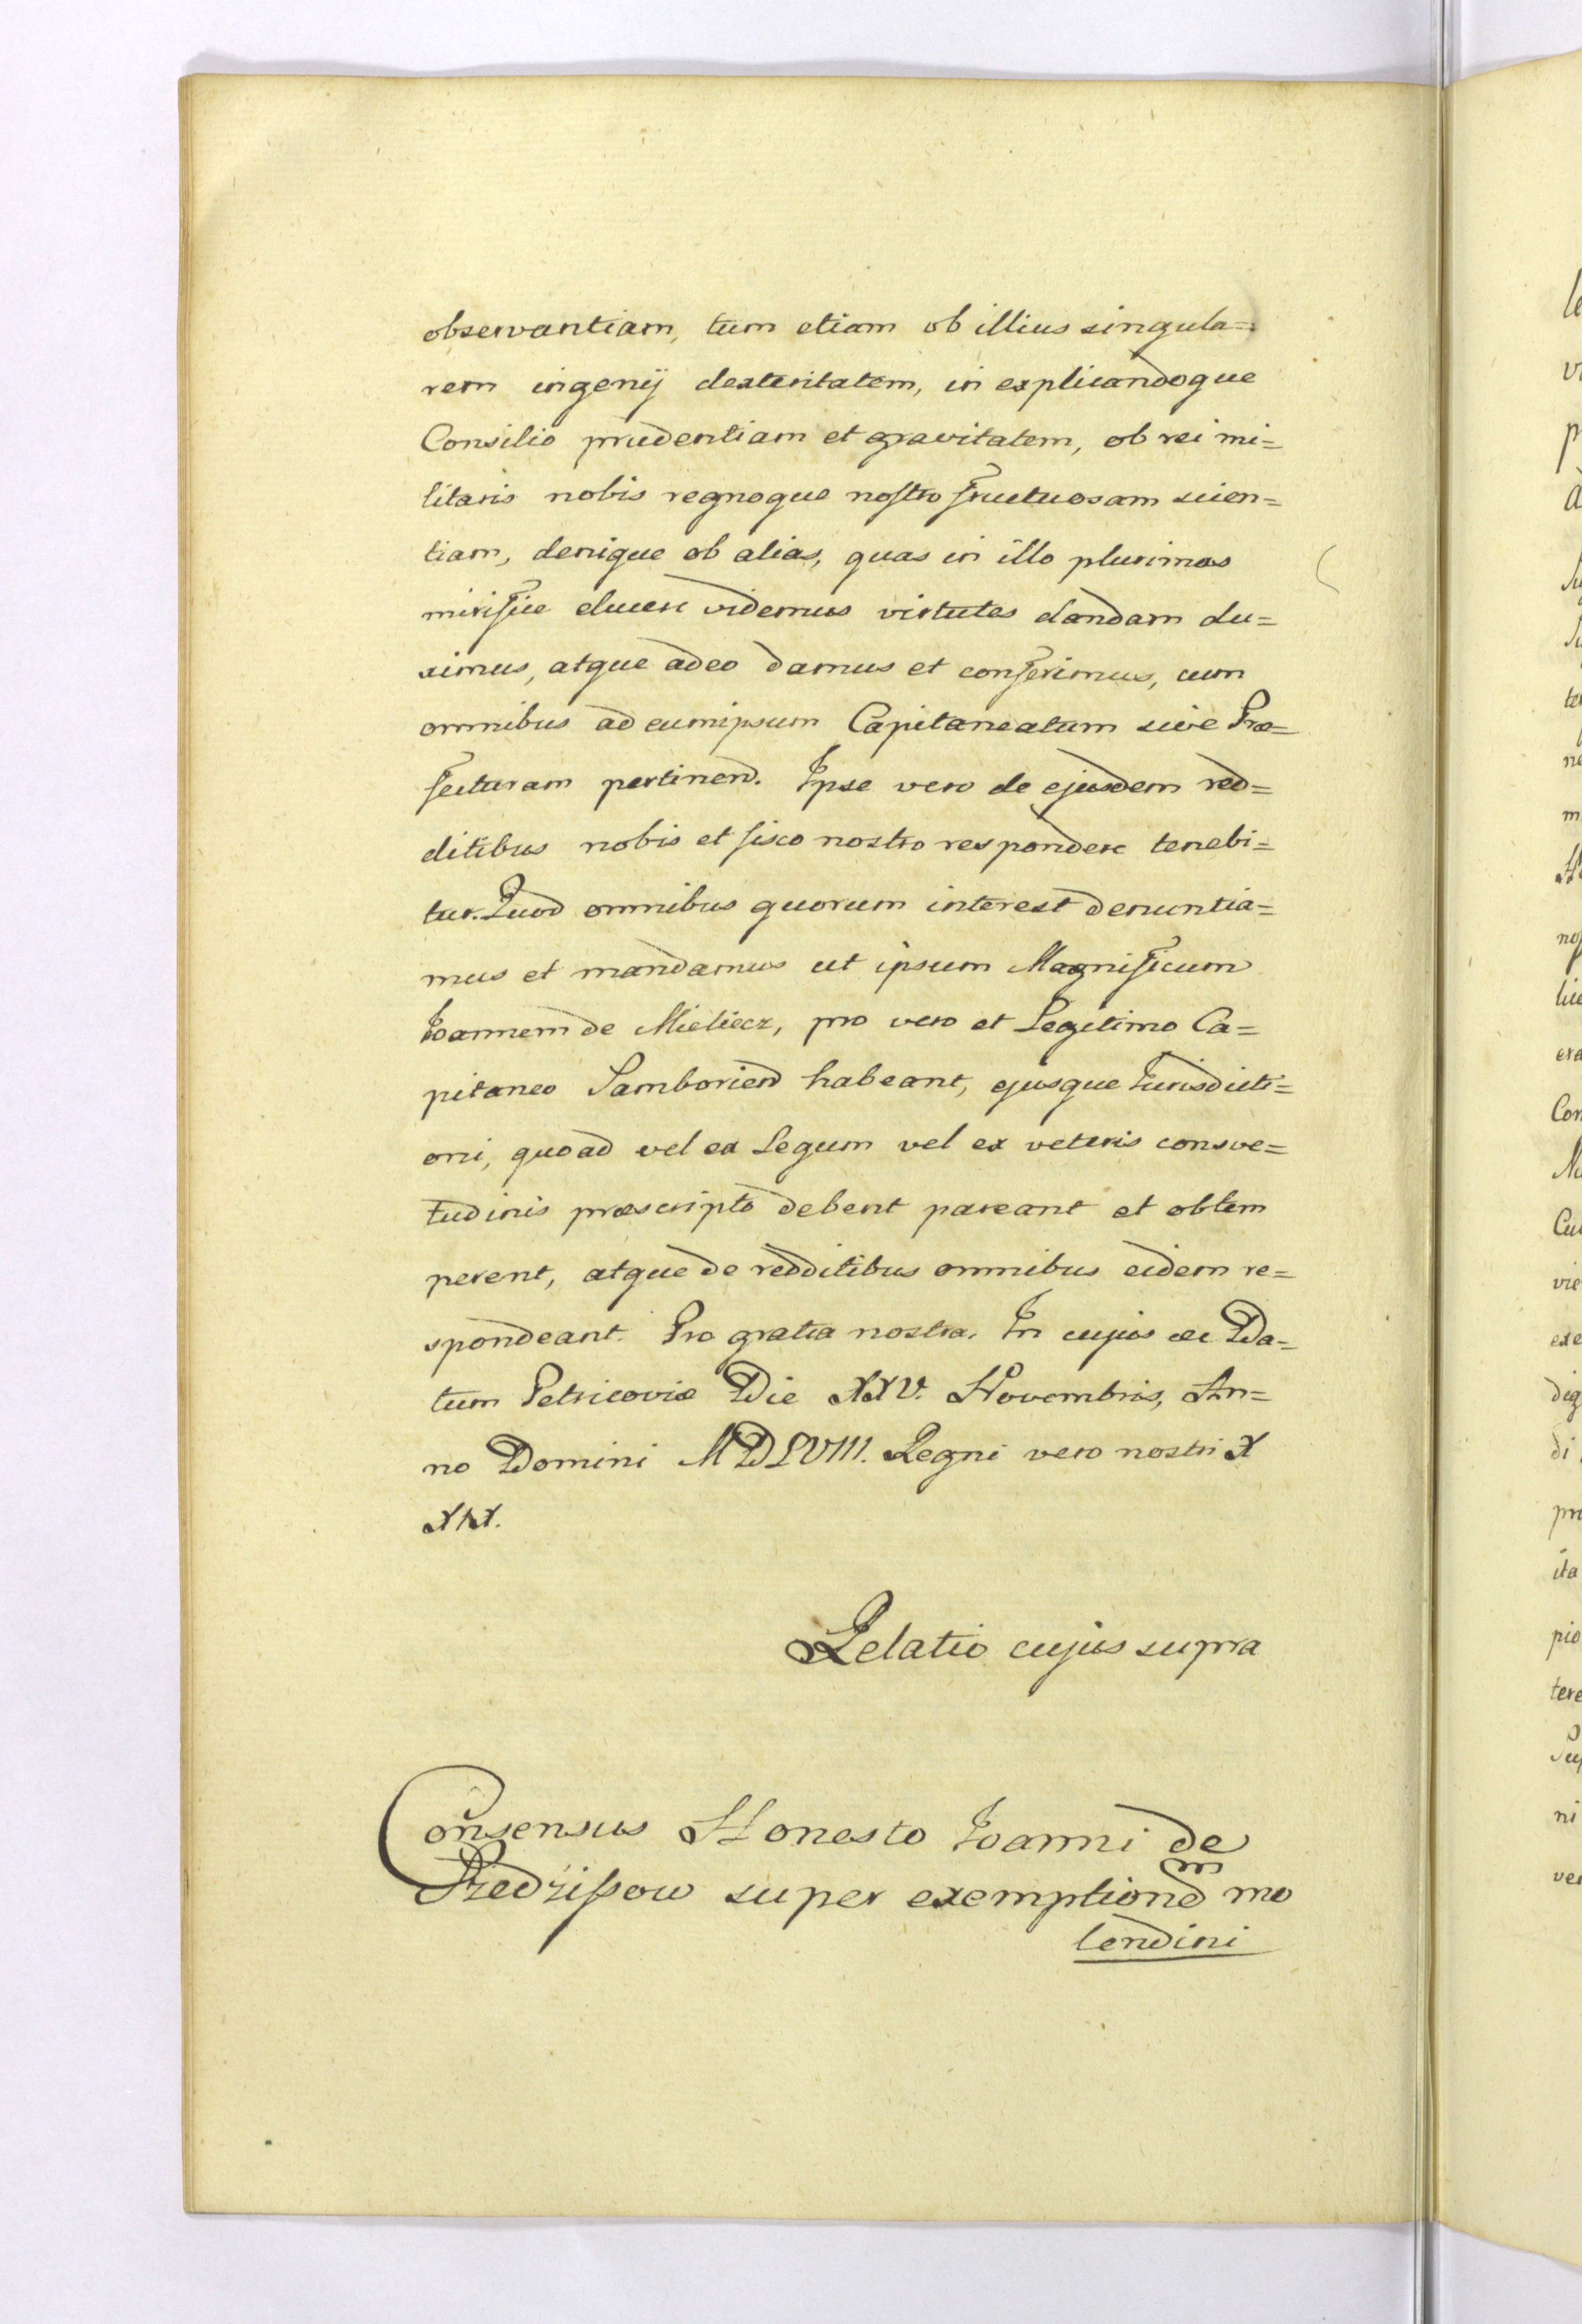 observantiam, tum etiam ob illius singula=
rem ingenij dexteritatem, in explicandoque
Consilio prudentiam et gravitatem, ob rei mi=
litaris nobis regnoque nostro fructuosam scien=
tiam, denique ob alias, quas in illo plurimas
mirifice elucere videmus virtutes dandam du=
ximus, atque adeo damus et conferimus, cum
omnibus ad eumipsum Capitaneatum sive Præ=
fecturam pertinend. Ipse vero de ejusdem red=
ditibus nobis et fisco nostro respondere tenebi=
tur. Quod omnibus quorum interest denuntia=
mus et mandamus ut ipsum Magnificum
Ioannem de Mieliecz, pro vero et Legitimo Ca=
pitaneo Samborien habeant, ejusque Iurisdicti=
oni, quoad vel ex Legum vel ex veteris consve=
tudinis præscripto debent pareant et obtem
perent, atque de redditibus omnibus eidem re=
spondeant. Pro gratia nostra. In cujus &c Da=
tum Petricoviæ Die XXV. Novembris, An=
no Domini MDLVIII. Regni vero nostri X
XIX.
Relatio cujus supra
Consensus Honesto Ioanni de
super exemptionem mo
lendini